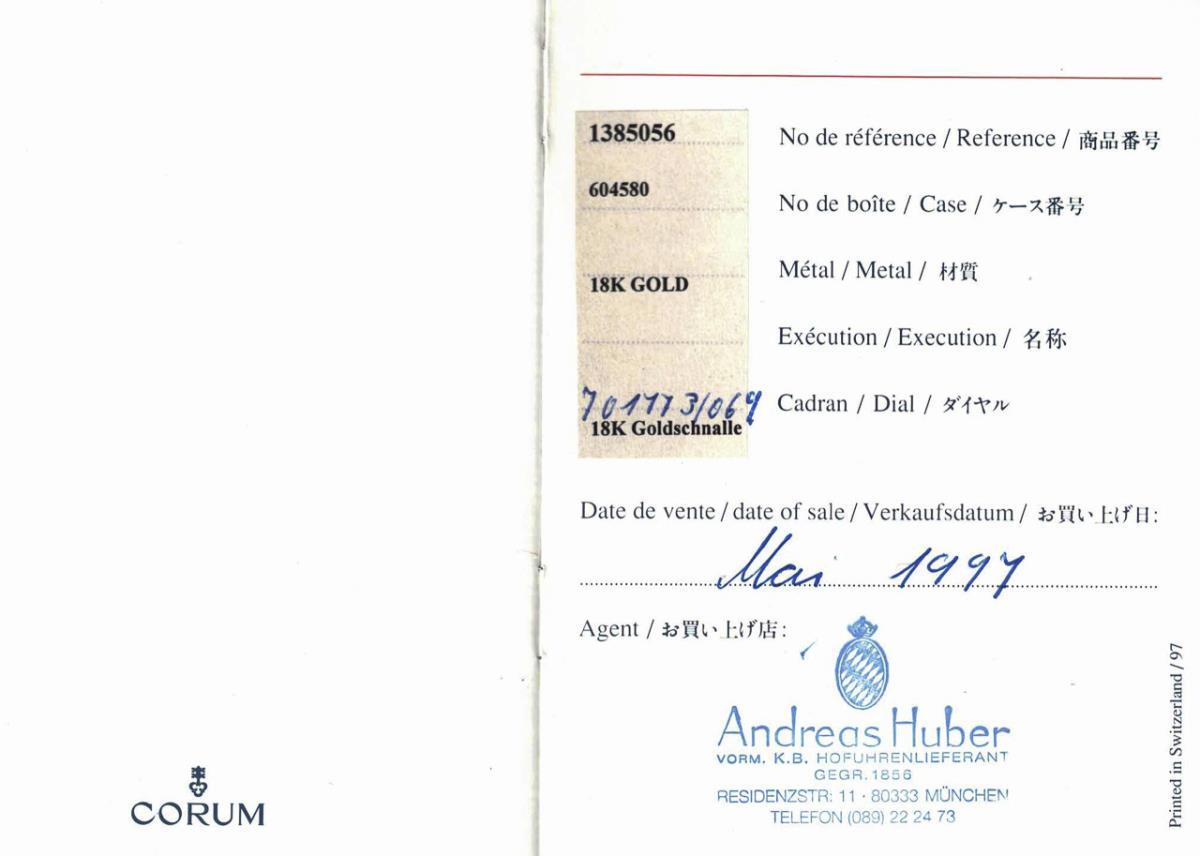 CORUM
1385056 No de référence / Reference / 商品番号
604580 No de boîte / Case / ケース番号
18K GOLD Métal / Metal / 材質
Exécution / Execution / 名称
701773/069 Cadran / Dial / ダイヤル
18K Goldschnalle
Date de vente / date of sale / Verkaufsdatum / お買い上げ日:
Mai 1997
Agent / お買い上げ店:
Andreas Huber
VORM. K.B. HOFUHRENLIEFERANT
GEGR. 1856
RESIDENZSTR: 11 · 80333 MÜNCHEN
TELEFON (089) 22 24 73
Printed in Switzerland / 97